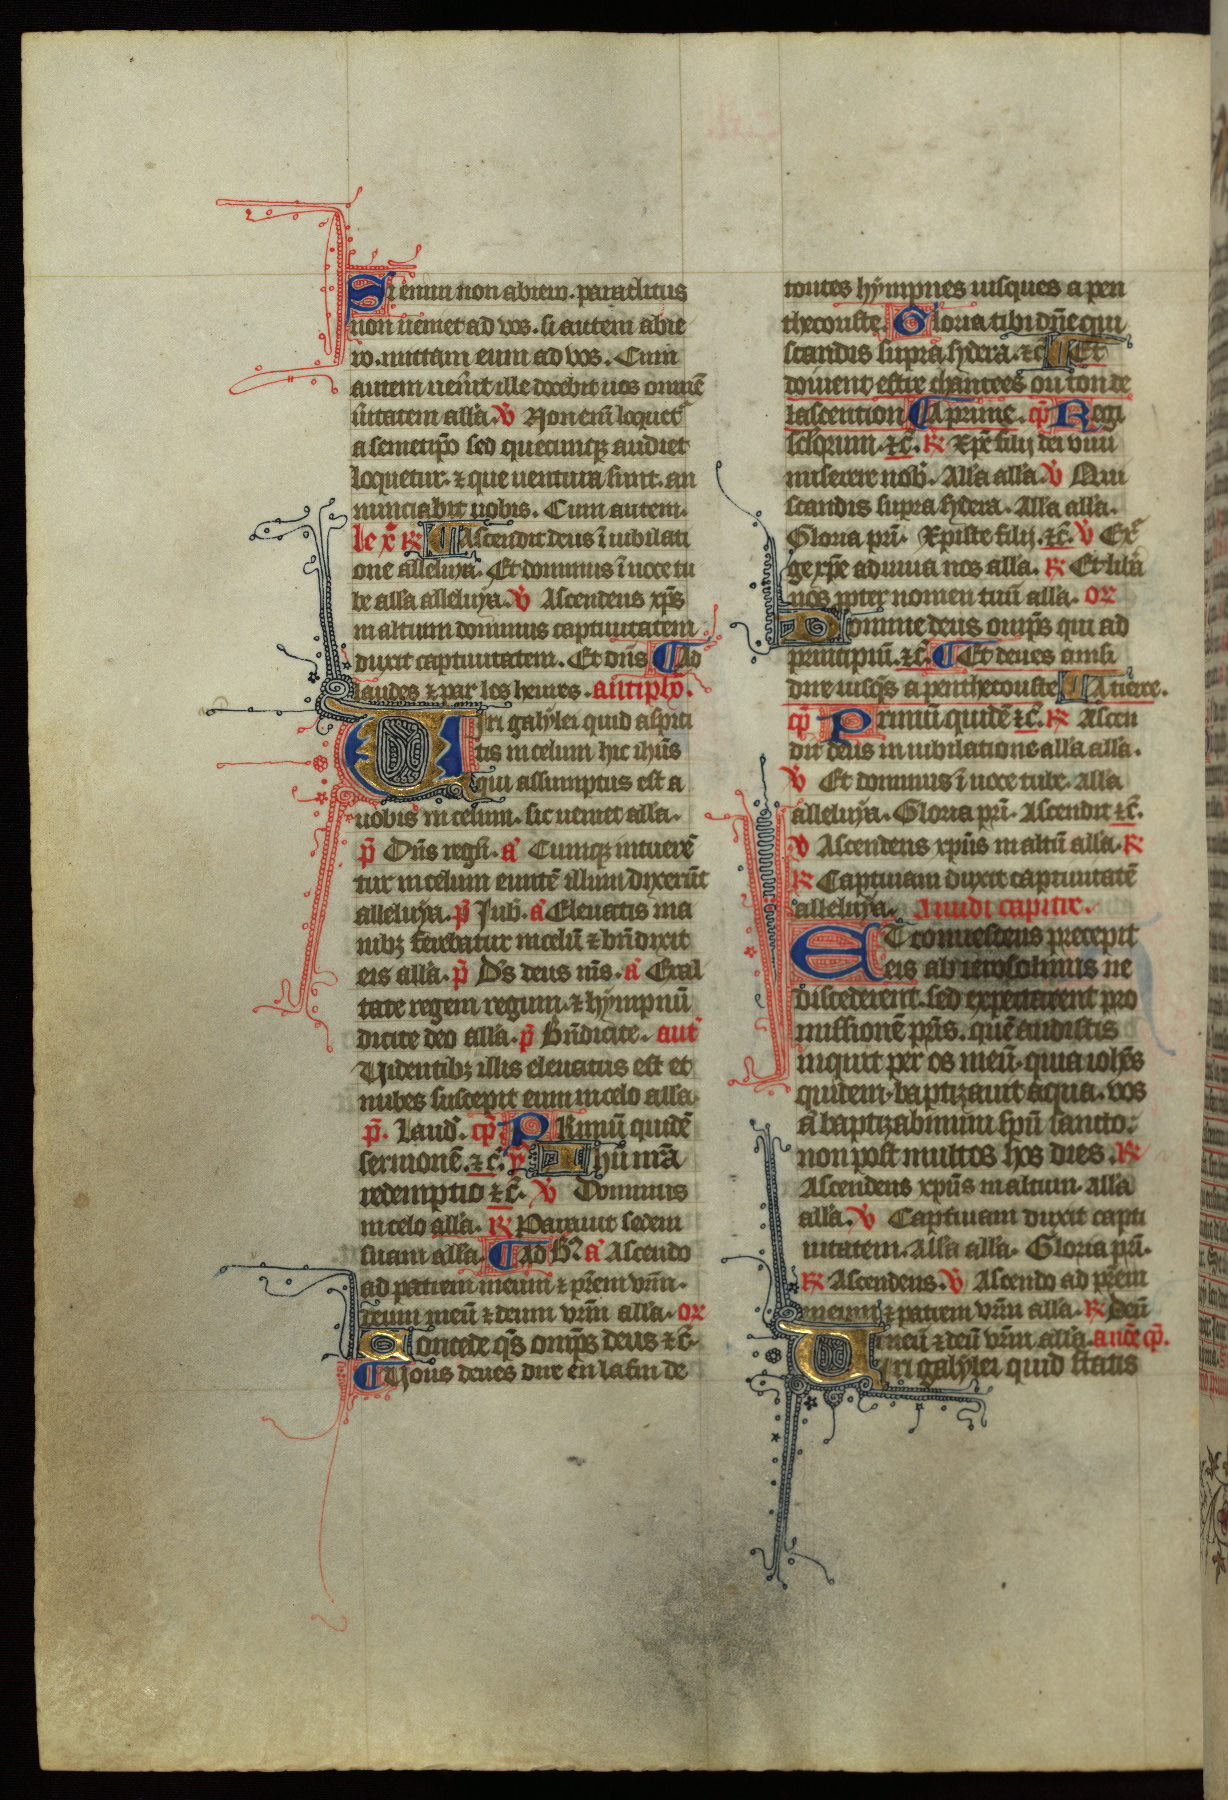 Si enim non abiero. paraclitus
non ueniet ad vos. si autem abie
ro. mittam eum ad vos. Cum
autem uen̄it ille docebit uos om̄nē
ūitatem all̄a. V̄ Non eni᷑ loquet᷑
a semetip̄o sed quecumqꝫ audiet
loquetur. ⁊ que uentura sunt. an
nunciabit uobis. Cum autem.
le x̄ R̄ ¶ Ascendit deus ī iubilati
one alleluya. Et dominus ī uoce tu
be all̄a alleluya. V̄ Ascendens xp̄s
in altum dominus captiuitatem
duxit captiuitatem. Et dn̄s ¶ Ad
laudes ⁊ par les heures. antiphō.
Uiri galylei quid aspiti
tis in celum hic ihūs
qui assumptus est a
uobis in celum. sic ueniet alla.
p̄ Dn̄s regn̄. a᷑ Cumqꝫ intuerē
tur in celum euntē illum dixerūt
alleluya. p̄ Jub. a᷑ Eleuatis ma
nibꝫ ferebatur in celū ⁊ bn̄dixit
eis alla. p̄ D̄s deus m̄s. a᷑ Exal
tate regem regum. ⁊ hympnū
dicite deo alla. p̄ Bn̄dicite. ant᷑
Uidentibꝫ illis eleuatus est et
nubes suscepit eum in celo alla.
p̄. Laud. cp̄ Primū quidē
sermonē. ⁊c̄. y᷑ Ihū nr̄a
redemptio ⁊c̄. V̄ Dominus
in celo alla. R̄ Parauit sedem
suam alla. ¶ Ad B᷑ a᷑ Ascendo
ad patrem meum ⁊ pr̄em vr̄m.
deum meū ⁊ deum vr̄m alla. or
Concede q̄s omp̄s deus ⁊c̄.
¶ Uous deues dire en la fin de
toutes hympnes iusques a pen
thecouste. Gloria tibi dn̄e qui
scandis supra sydera. ⁊c̄ ¶ Et
doiuent estre chantees ou ton de
lascention ¶ A prime. cp̄ Regi
sclorum. ⁊c̄. R̄ Xpē fili dei viui
miserere nob᷑. Alla alla. V̄ Qui
scandis supra sydera. Alla alla.
Gloria pr̄i. Xpiste fili. ⁊c̄. V̄ Ex᷑
ge xp̄e adiuua nos alla. R̄ Et lib̄a
nos propter nomen tuū alla. or
Domine deus omp̄s qui ad
principiū. ⁊c̄. ¶ Et deues ainsi
dire iusqs a penthecouste ¶ A tierce.
cp̄ Primū quidē ⁊c̄. R̄ Ascen
dit deus in iubilatione alla alla.
V̄ Et dominus ī uoce tube. alla
alleluya. Gloria pr̄i. Ascendit ⁊c̄.
V̄ Ascendens xpūs in altū alla. R̄
R̄ Captiuam duxit captiuitatē
alleluya. A midi capitre.
Et conuescens precepit
eis ab ierosolimis ne
discederent. sed expectarent pro
missionē pr̄is. quē audistis
inquit per os meū. quia ioh̄es
quidem. baptizauit aqua. vos
a᷑ baptizabimini spū sancto.
non post multos hos dies. R̄
Ascendens xpūs in altum. alla
alla. V̄ Captiuam duxit capti
uitatem. Alla alla. Gloria pr̄i.
R̄ Ascendens. V̄ Ascendo ad pr̄em
meum ⁊ patrem vr̄m alla. R̄ Deū
meū ⁊ deū vr̄m alla. a nōe cp̄.
Uiri galylei quid statis